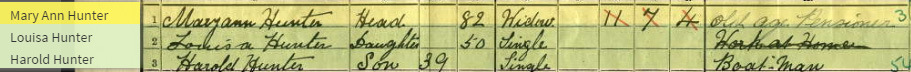 Mary Ann Hunter
Louisa Hunter
Harold Hunter
1 Maryann Hunter Head 82 Widow 11 7 4 Old age Pensioner 3
2 Louisa Hunter Daughter 50 Single Work at Home
3 Harold Hunter Son 39 Single Boat-Man